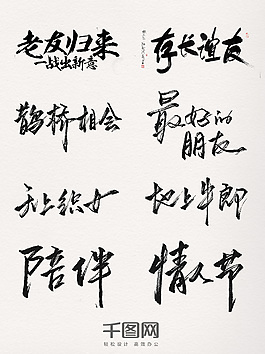 老友归来
二战出新意
存长谊友
鹊桥相会
最好的
朋友
天上织女
地上牛郎
陪伴
情人节
千图网
轻松设计 高效办公